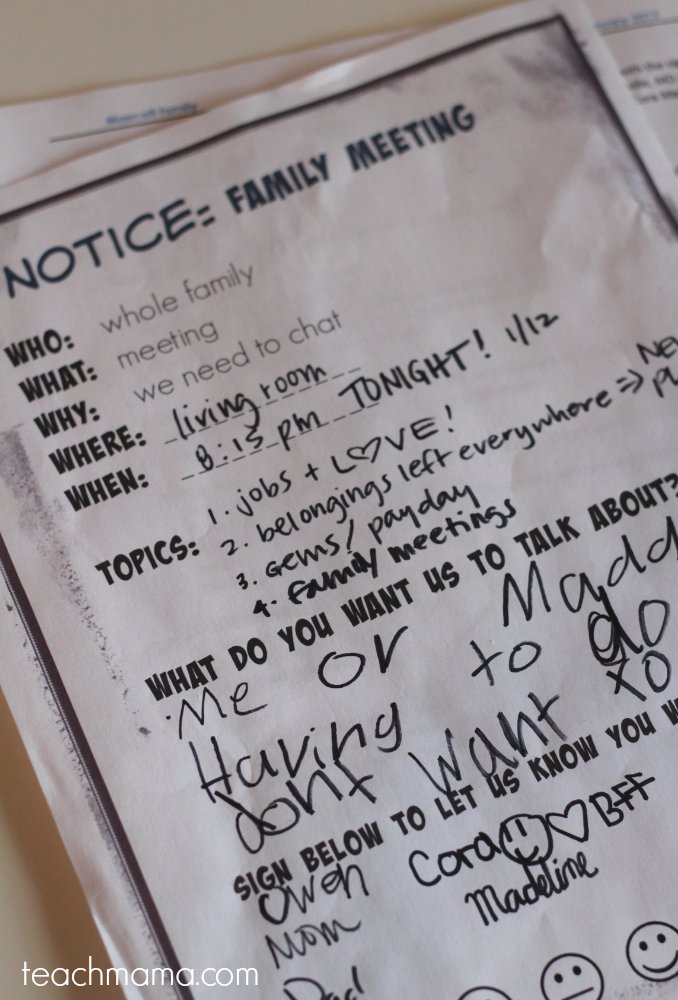 NOTICE: FAMILY MEETING
WHO: whole family
WHAT: meeting
WHY: we need to chat
WHERE: living room
WHEN: 8:15 pm TONIGHT! 1/12
TOPICS: 1. jobs + LOVE!
2. belongings left everywhere ⇒
3. gems/payday
4. family meetings
WHAT DO YOU WANT US TO TALK ABOUT?
Me or Madd
Having to do
dont want to
SIGN BELOW TO LET US KNOW YOU W
Owen Cora ♡ BFF
Mom Madeline
Dad
teachmama.com